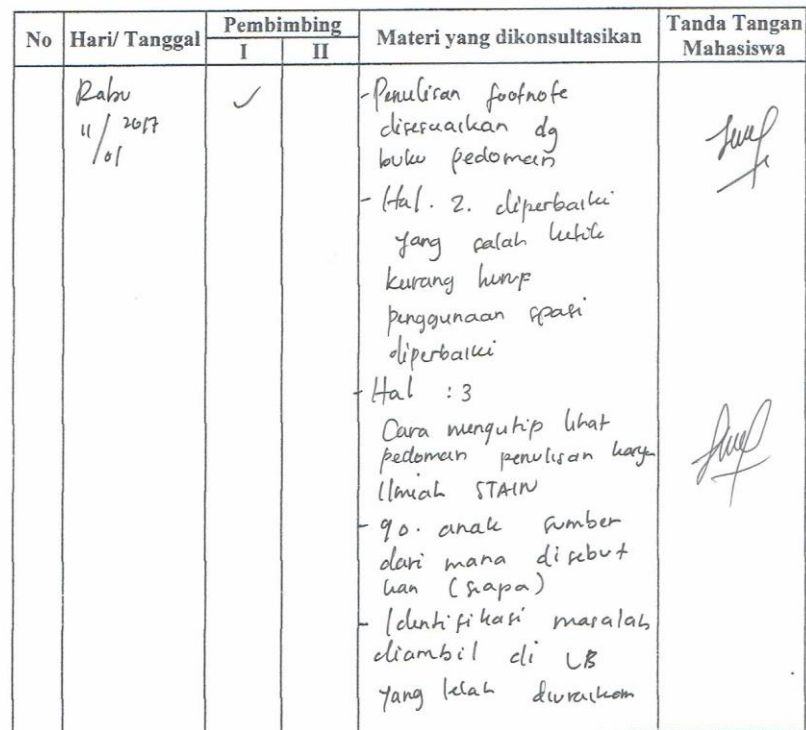 No Hari/ Tanggal Pembimbing Materi yang dikonsultasikan Tanda Tangan
I II Mahasiswa
Rabu ✓ - Penulisan footnote
11/01 2017 disesuaikan dg
buku pedoman
- Hal. 2. diperbaiki
yang salah ketik
kurang huruf
penggunaan spasi
diperbaiki
- Hal : 3
Cara mengutip lihat
pedoman penulisan karya
Ilmiah STAIN
- 90. anak sumber
dari mana disebut
kan (siapa)
- Identifikasi masalah
diambil di LB
yang telah diuraikan